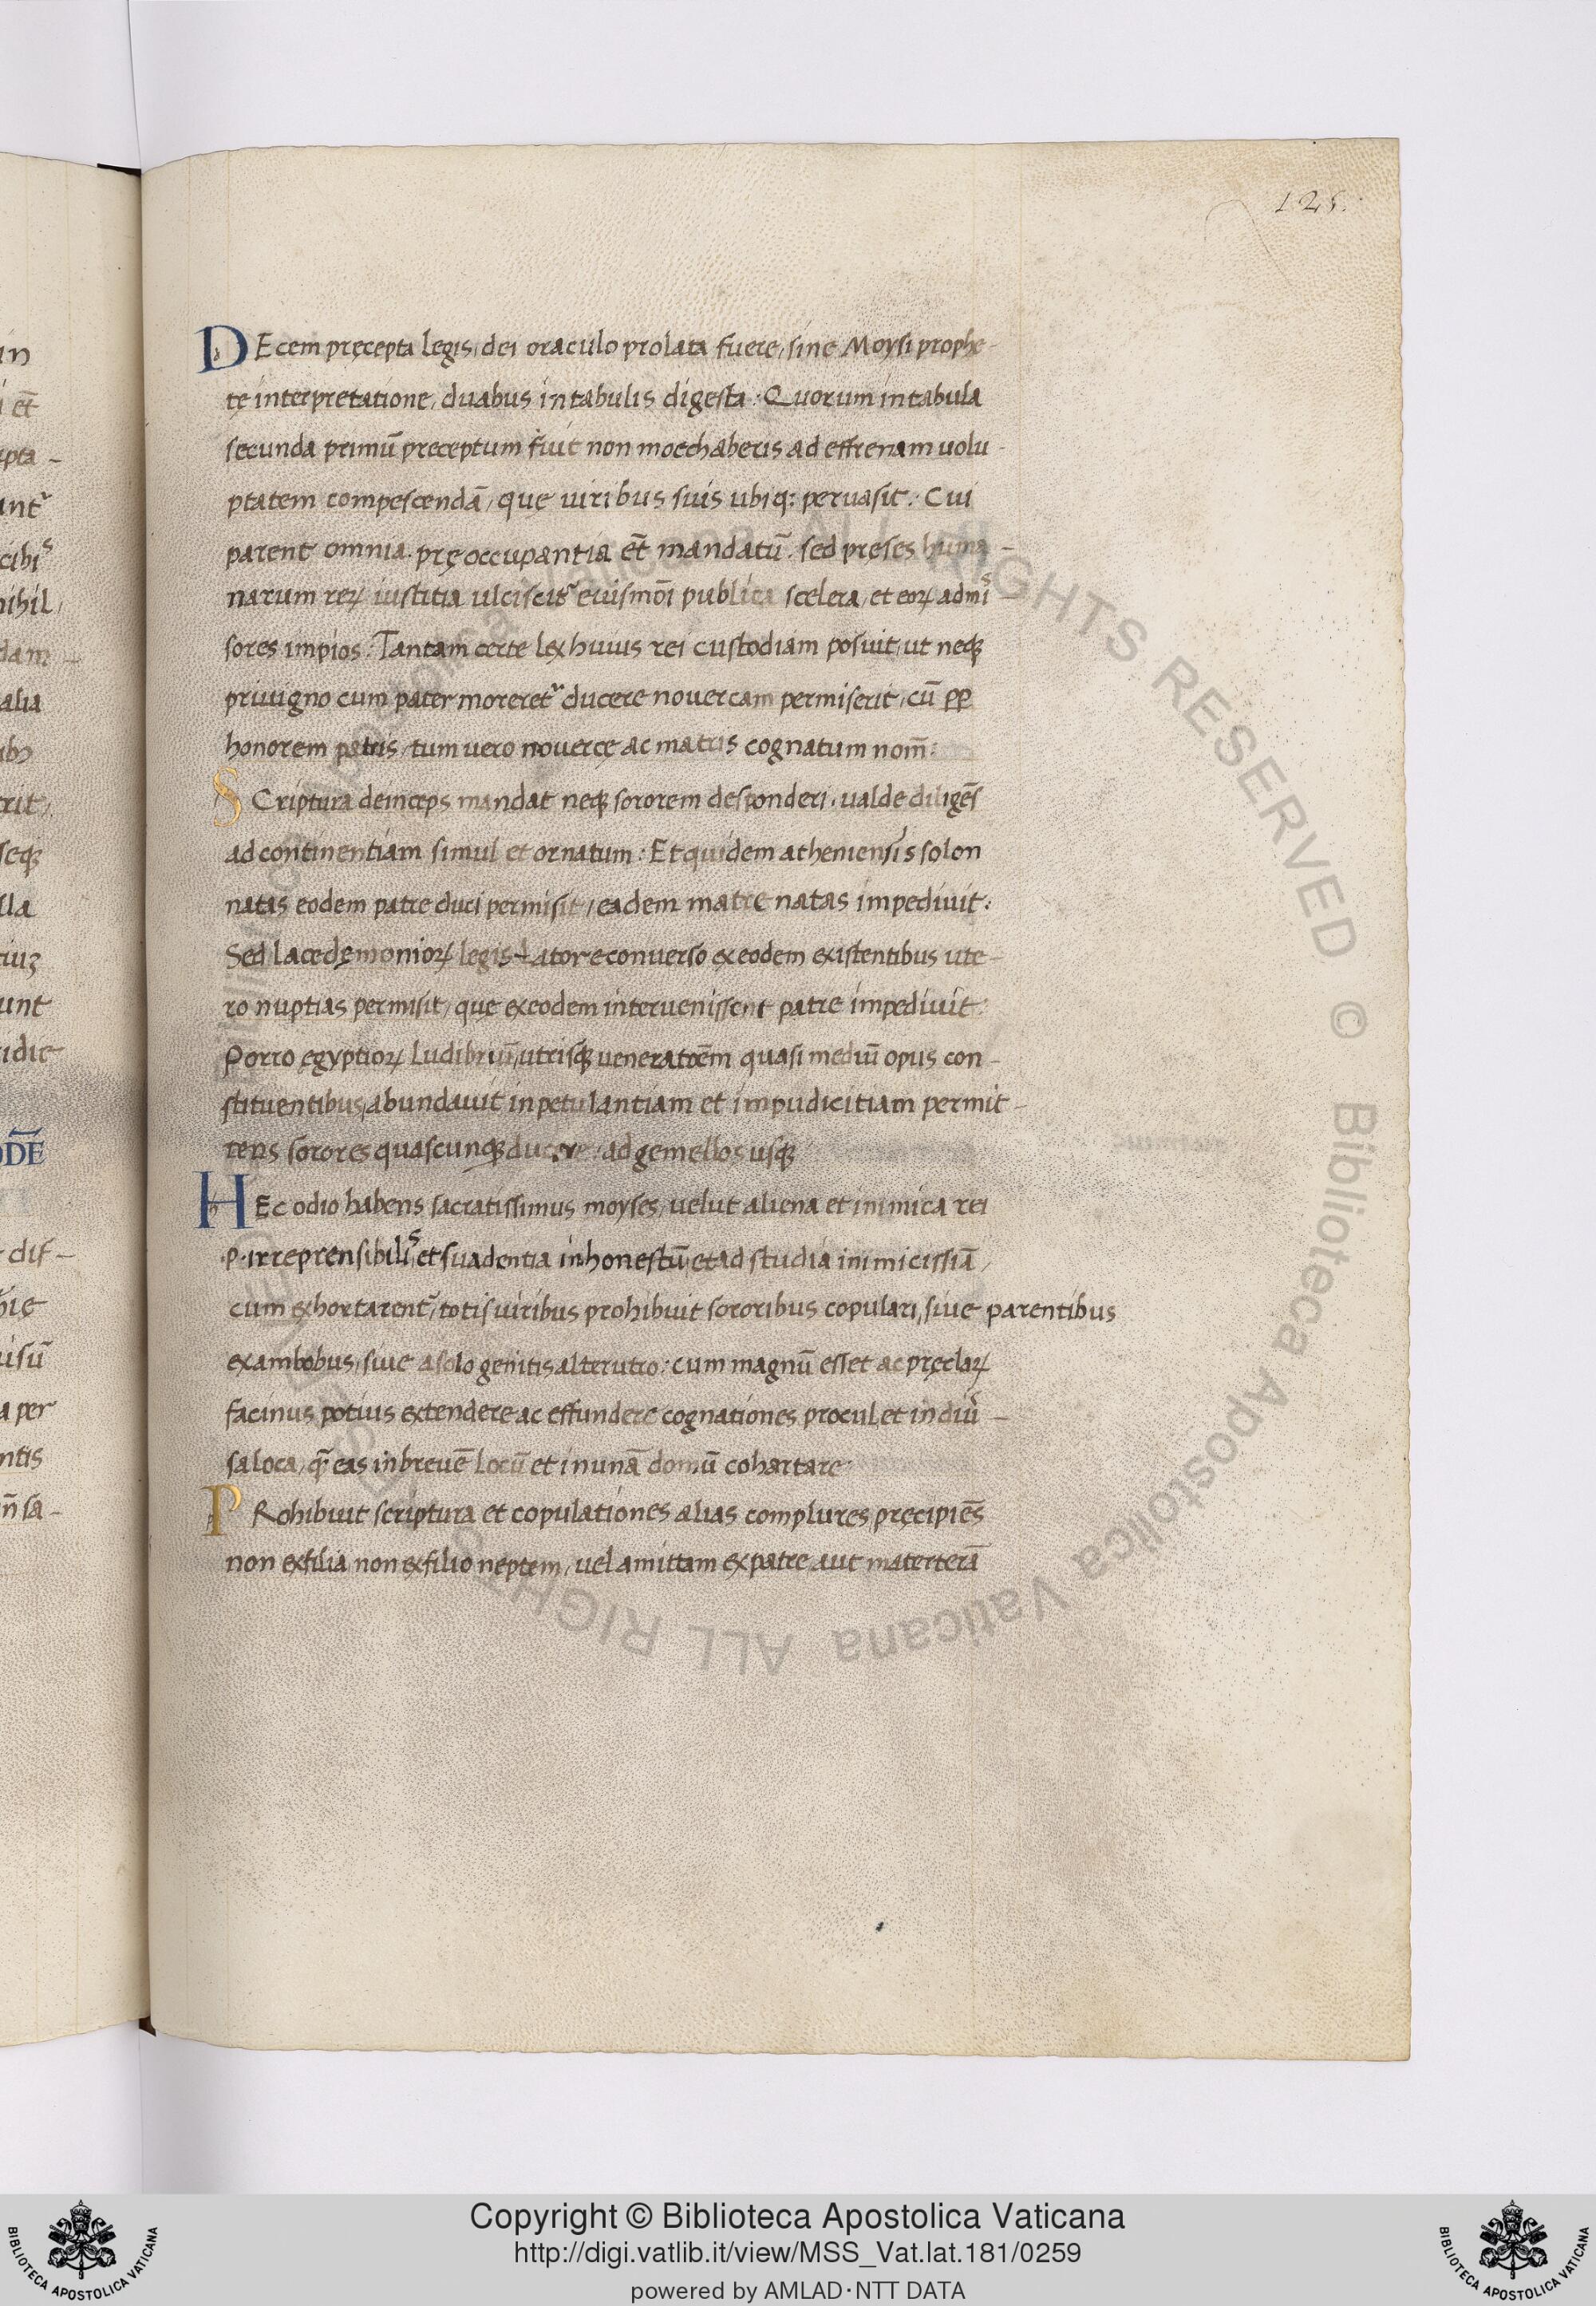 125.
DEcem pręcepta legis, dei oraculo prolata fuere, sine Moysi prophe-
te interpretatione, duabus in tabulis digesta: Quorum in tabula
secunda primū preceptum fuit non moechaberis ad effrenam uolu-
ptatem compescendā, quę uiribus suis ubiq; peruasit: Cui
parent omnia. pręoccupantia et̄ mandatū. sed pręses huma-
narum reꝝ iustitia ulciscit᷑ eiusmōi publica scelera, et eoꝝ admis-
sores impios: Tantam certe lex huius rei custodiam posuit, ut neqꝫ
priuigno cum pater moreret᷑ ducere nouercam permiserit, cū ꝓꝑ
honorem patris, tum uero nouercę ac matris cognatum nom̄:
SCriptura deinceps mandat neqꝫ sororem desponderi, ualde diligēs
ad continentiam simul et ornatum: Et quidem atheniensis solon
natas eodem patre duci permisit, eadem matre natas impediuit:
Sed lacedęmonioꝝ legis-lator e conuerso ex eodem existentibus ute-
ro nuptias permisit, quę ex eodem interuenissent patre impediuit:
Porro ęgyptioꝝ ludibriū, utrisqꝫ
quasi mediū opus con-
stituentibus, abundauit in petulantiam et impudicitiam permit-
tens sorores quascunqꝫ ducere, ad gemellos usqꝫ
HEc odio habens sacratissimus moyses, uelut aliena et inimica rei
.p. irreprensibilis et suadentia inhonestū, et ad studia inimicissiā,
cum exhortarent᷑, totis uiribus prohibuit sororibus copulari, siue parentibus
ex ambobus, siue a solo genitis alterutro: cum magnū esset ac pręclaꝝ
facinus potius extendere ac effundere cognationes procul, et in diu͛-
sa loca, q̄ eas in breuē locū et in unā domū cohartare
PRohibuit scriptura et copulationes alias complures, pręcipiēs
non ex filia non ex filio neptem, uel amittam ex patre aut materterā
in
et̄
pta-
unt᷑
cibis
nihil,
dam-
alia
ibꝫ
rit,
seqꝫ
lla
unt
idie
ODĒ
dif-
uisū
a per
ntis
Copyright © Biblioteca Apostolica Vaticana
http://digi.vatlib.it/view/MSS_Vat.lat.181/0259
powered by AMLAD·NTT DATA
BIBLIOTECA APOSTOLICA VATICANA
BIBLIOTECA APOSTOLICA VATICANA
© Biblioteca Apostolica Vaticana ALL RIGHTS RESERVED